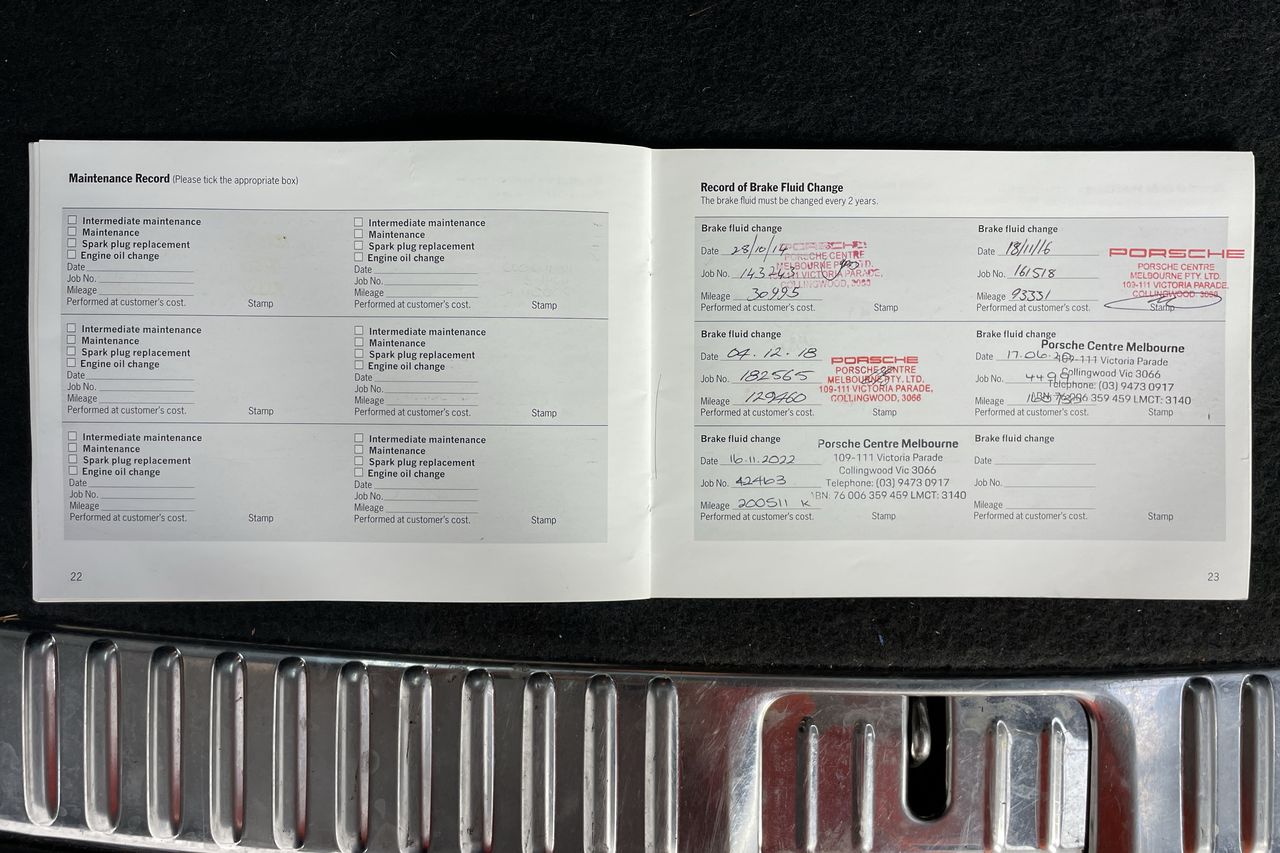 Maintenance Record (Please tick the appropriate box)
Intermediate maintenance
Maintenance
Spark plug replacement
Engine oil change
Date
Job No.
Mileage
Performed at customer's cost. Stamp
Intermediate maintenance
Maintenance
Spark plug replacement
Engine oil change
Date
Job No.
Mileage
Performed at customer's cost. Stamp
Intermediate maintenance
Maintenance
Spark plug replacement
Engine oil change
Date
Job No.
Mileage
Performed at customer's cost. Stamp
Intermediate maintenance
Maintenance
Spark plug replacement
Engine oil change
Date
Job No.
Mileage
Performed at customer's cost. Stamp
Intermediate maintenance
Maintenance
Spark plug replacement
Engine oil change
Date
Job No.
Mileage
Performed at customer's cost. Stamp
Intermediate maintenance
Maintenance
Spark plug replacement
Engine oil change
Date
Job No.
Mileage
Performed at customer's cost. Stamp
22
Record of Brake Fluid Change
The brake fluid must be changed every 2 years.
Brake fluid change
Date 28/10/14
Job No.
Mileage 30995
Performed at customer's cost. Stamp
PORSCHE
PORSCHE CENTRE
MELBOURNE PTY. LTD.
VICTORIA PARADE,
COLLINGWOOD, 3066
Brake fluid change
Date 18/11/16
Job No. 161518
Mileage 93331
Performed at customer's cost. Stamp
PORSCHE
PORSCHE CENTRE
MELBOURNE PTY. LTD.
109-111 VICTORIA PARADE,
COLLINGWOOD, 3066
Brake fluid change
Date 04.12.18
Job No. 182565
Mileage 129460
Performed at customer's cost. Stamp
PORSCHE
PORSCHE CENTRE
MELBOURNE PTY. LTD.
109-111 VICTORIA PARADE,
COLLINGWOOD, 3066
Brake fluid change
Date 17.06.
Job No.
Mileage
Performed at customer's cost. Stamp
Porsche Centre Melbourne
109-111 Victoria Parade
Collingwood Vic 3066
Telephone: (03) 9473 0917
ABN: 76 006 359 459 LMCT: 3140
Brake fluid change
Date 16.11.2022
Job No. 42463
Mileage 200511 K
Performed at customer's cost. Stamp
Porsche Centre Melbourne
109-111 Victoria Parade
Collingwood Vic 3066
Telephone: (03) 9473 0917
ABN: 76 006 359 459 LMCT: 3140
Brake fluid change
Date
Job No.
Mileage
Performed at customer's cost. Stamp
23